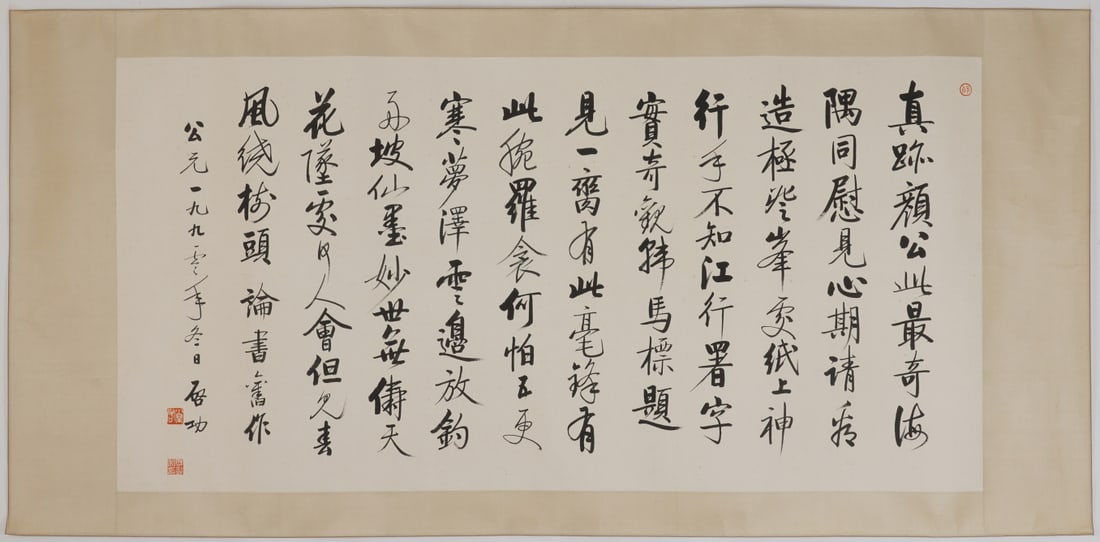 真跡顏公此最奇海
隅同慰見心期請看
造極登峯處紙上神
行手不知江行署字
實奇觀韓馬標題
見一臠有此毫鋒有
此腕羅衾何怕五更
寒夢澤雲邊放釣
舟坡仙墨妙世無儔天
花墜處何人會但見春
風繞樹頭論書舊作
公元一九九零年冬日启功